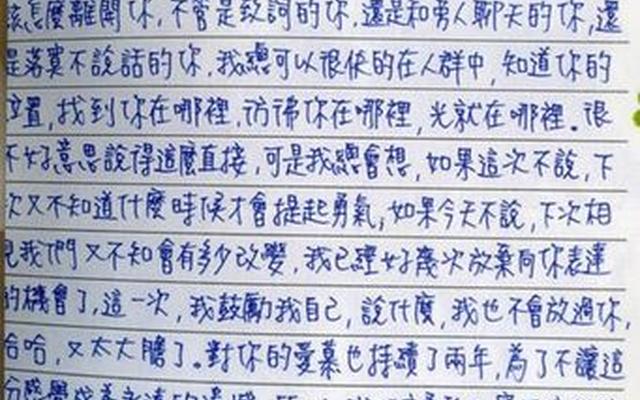 該怎麼離開你,不管是致詞的你,還是和旁人聊天的你,還
是落寞不說話的你,我總可以很快的在人群中,知道你的
位置,找到你在哪裡,彷彿你在哪裡,光就在哪裡。很
不好意思說得這麼直接,可是我總會想,如果這次不說,下
次又不知道什麼時候才會提起勇氣,如果今天不說,下次相
見我們又不知會有多少改變,我已經好幾次放棄向你表達
的機會了,這一次,我鼓勵我自己,說什麼,我也不會放過你,
哈哈,又太大膽了。對你的愛慕也持續了兩年,為了不讓這